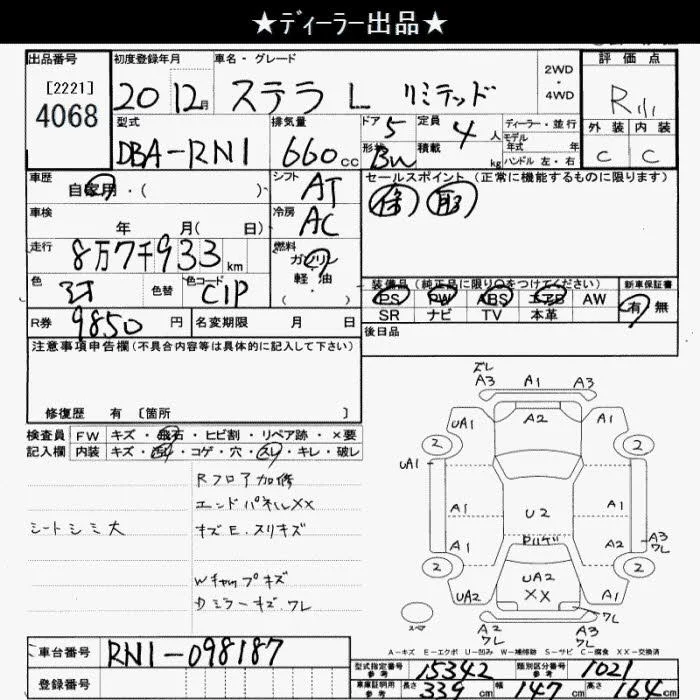 ★ディーラー出品★
出品番号
[2221]
4068
初度登録年月
20 12月
車名・グレード
ステラ L リミテッド
2WD
・
4WD
評価点
R
外装 内装
C C
型式
DBA-RN1
排気量
660cc
ドア 形状
5
定員 積載
4人
kg
ディーラー・並行
モデル年式 年
ハンドル 左・右
車歴
自家用・( )
シフト
AT
セールスポイント(正常に機能するものに限ります)
車検
年 月( 日)
冷房
AC
走行
8万7千933km
燃料
ガソリン
軽・油
・( )
色
色替
色コード
C1P
装備品(純正品に限り○をつけてください)
PS PW ABS エアB AW
SR ナビ TV 本革
新車保証書
有 無
R券 9850円
名変期限 月 日
後日品
注意事項申告欄(不具合内容等は具体的に記入して下さい)
修復歴 有 〔箇所 〕
検査員記入欄
FW キズ・飛石・ヒビ割・リペア跡・×要
内装 キズ・汚れ・コゲ・穴・スレ・キレ・破レ
Rフロア加修
エンドパネルXX
シートシミ大
キズE.スリキズ
Wキャップキズ
Dミラーキズ.ワレ
ズレ
A3 A1 A3
UA1 A2 A1
2 2
UA1
A1 U2 A1
A1 A2 A3
ワレ
2 2
UA2 UA2 A1
XX
ワレ
スペア
A2
ワレ
A3
A-キズ E-エクボ U-凹み W-補修跡 S-サビ C-腐食 XX-交換済
車台番号 RN1-098187
登録番号
型式指定番号 参考 15342
類別区分番号 参考 1021
車庫証明用 参考 長さ 339cm 幅 147cm 高さ 164cm